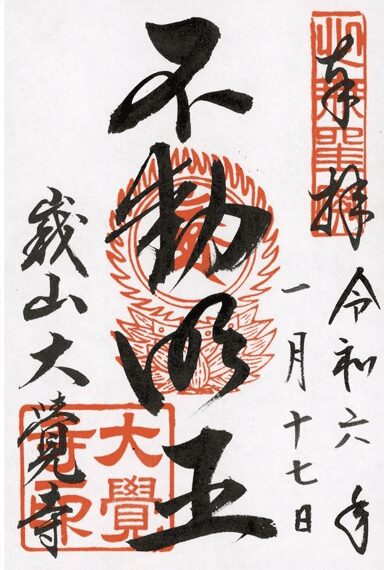 奉拝
令和六年
一月十七日
不動明王
峩山大覺寺
大覺寺印